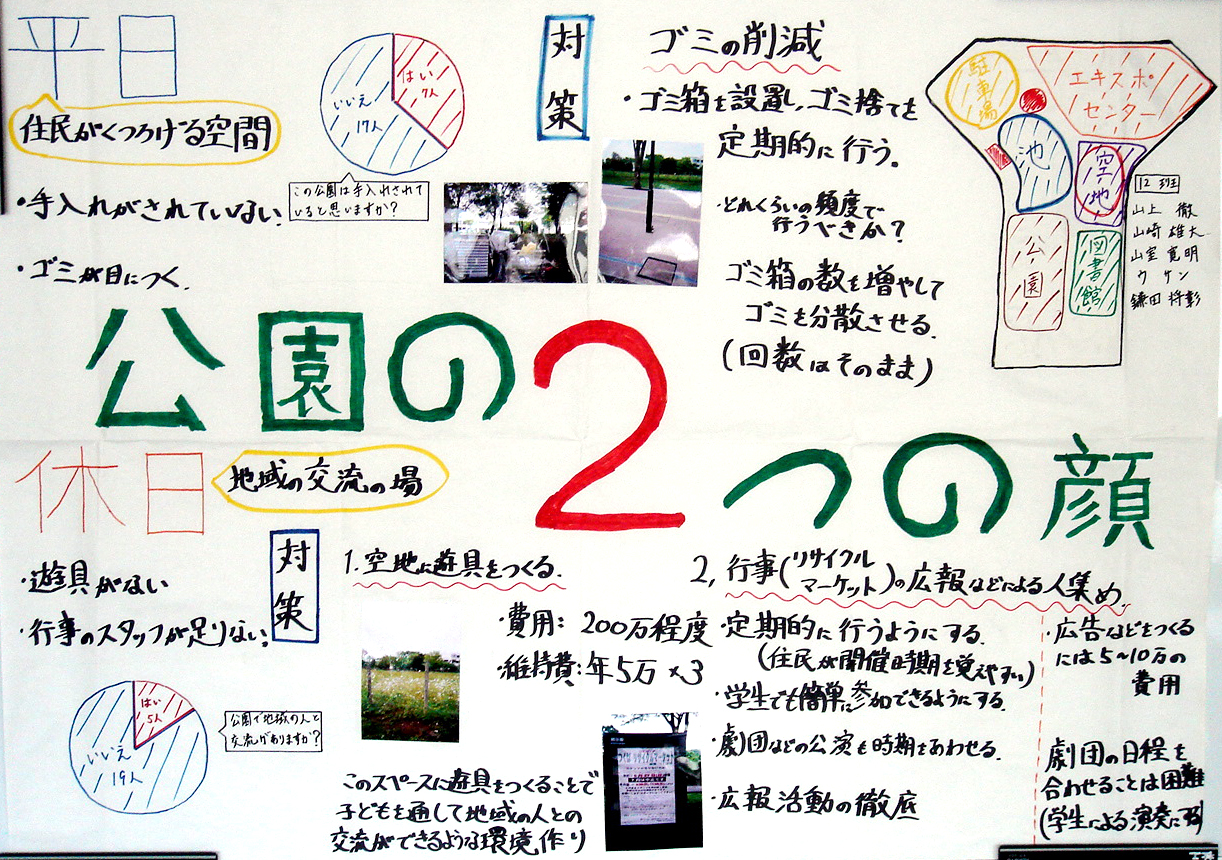 平日
住民がくつろげる空間
・手入れがされていない
・ゴミが目につく
はい
7人
いいえ
17人
この公園は手入れされて
いると思いますか?
対策
ゴミの削減
・ゴミ箱を設置し、ゴミ捨てを
定期的に行う。
・どれくらいの頻度で
行うべきか?
ゴミ箱の数を増やして
ゴミを分散させる。
(回数はそのまま)
駐車場
エキスポ
センター
池
空地
公園
図書館
12班
山上 徹
山崎 雄大
山室 寛明
ウ ケン
鎌田 将彰
公園の2つの顔
休日
地域の交流の場
・遊具がない
・行事のスタッフが足りない
はい
5人
いいえ
19人
公園で地域の人と
交流がありますか?
対策
1. 空地に遊具をつくる.
・費用: 200万程度
・維持費:年5万×3
このスペースに遊具をつくることで
子どもを通して地域の人との
交流ができるような環境作り
2, 行事(リサイクル
マーケット)の広報などによる人集め.
・定期的に行うようにする.
(住民が開催時期を覚えやすい)
・学生でも簡単に参加できるようにする.
・劇団などの公演も時期をあわせる.
・広報活動の徹底
・広告などをつくる
には5~10万の
費用
劇団の日程を
合わせることは困難
(学生による演奏にする)